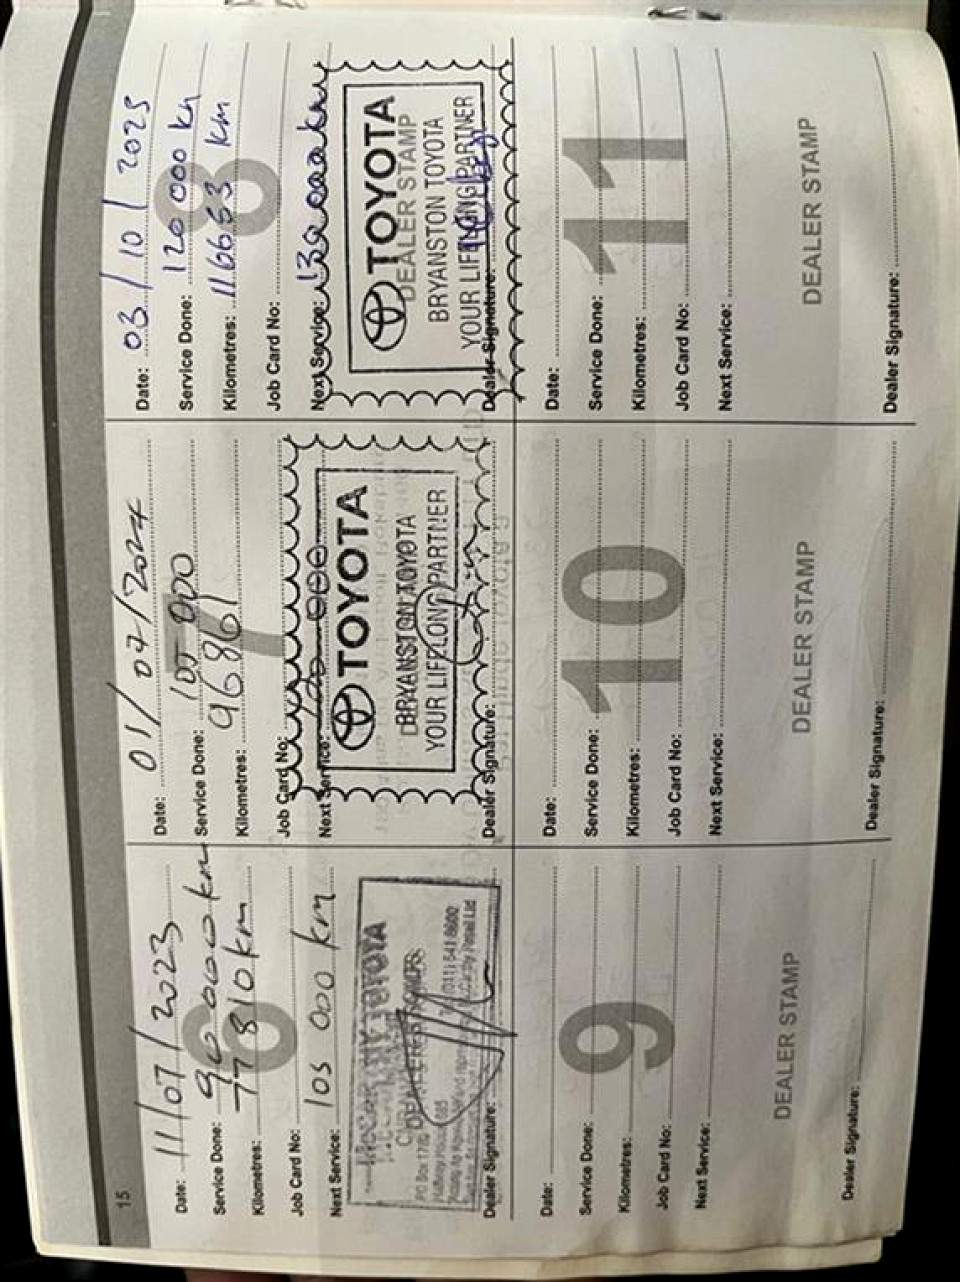 15
6
Date: 11/07/2023
Service Done: 90 000 km
Kilometres: 77810 km
Job Card No:
Next Service: 105 000 km
McCARTHY TOYOTA
DEALER STAMP
PO Box 1780
685
(011) 541 8600
McCarthy Retail Ltd
Dealer Signature:
7
Date: 01/07/2024
Service Done: 105 000
Kilometres: 96861
Job Card No:
Next Service: 120 000
TOYOTA
DEALER STAMP
BRYANSTON TOYOTA
YOUR LIFELONG PARTNER
Dealer Signature:
8
Date: 03/10/2025
Service Done: 120 000 km
Kilometres: 116653 km
Job Card No:
Next Service: 130 000km
TOYOTA
DEALER STAMP
BRYANSTON TOYOTA
YOUR LIFELONG PARTNER
Dealer Signature:
9
Date:
Service Done:
Kilometres:
Job Card No:
Next Service:
DEALER STAMP
Dealer Signature:
10
Date:
Service Done:
Kilometres:
Job Card No:
Next Service:
DEALER STAMP
Dealer Signature:
11
Date:
Service Done:
Kilometres:
Job Card No:
Next Service:
DEALER STAMP
Dealer Signature: